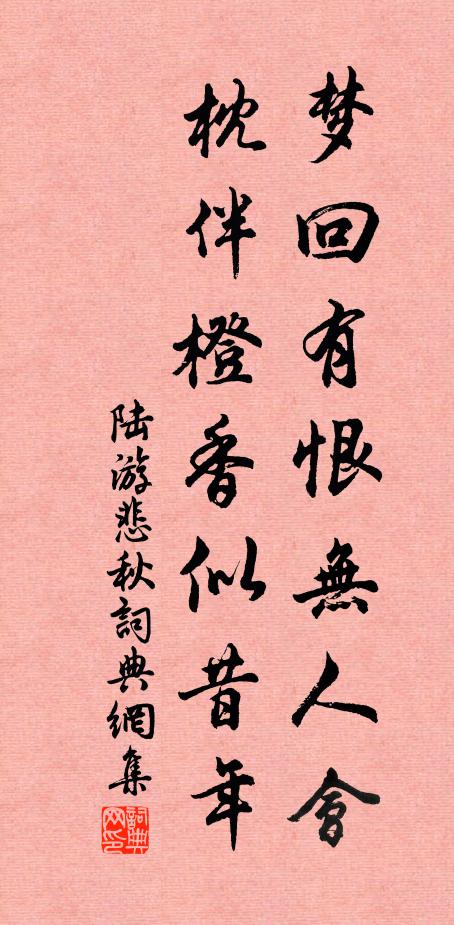 梦回有恨無人會
枕伴橙香似昔年
陆游悲秋詞典網集
詞典網印